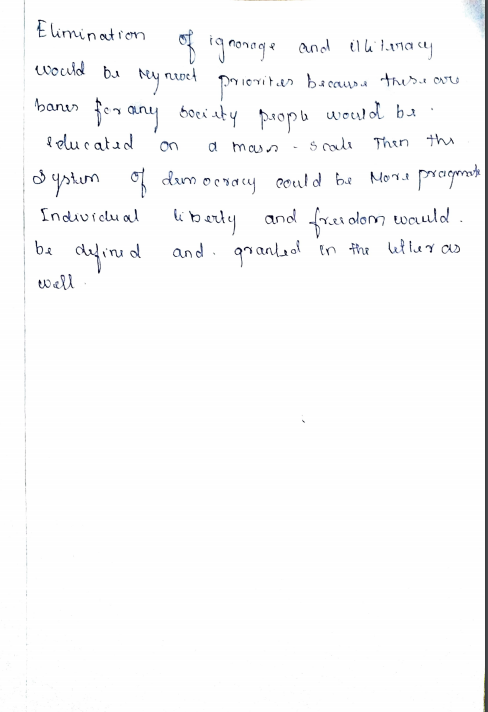 Elimination of ignorage and illiteracy
would be my next priorites because these are
banes for any society people would be
educated on a mass - scale Then the
System of democracy could be More pragmate
Individual liberty and freedom would.
be defined and. granted in the letter as
well.